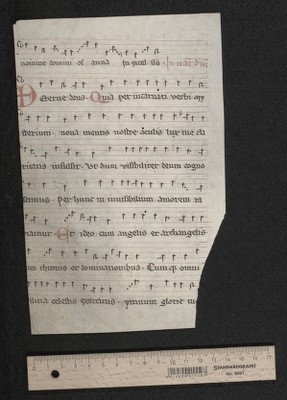 nomine domini os anna In excel sis In nat dni
Eterne deus Quia per incarnati verbi mys
terium noua mentis nostre oculis lux tue cla
ritatis infulsit Ut dum visibiliter deum cogno
scimus per hunc in inuisibilium amorem ra
piamur Et ideo cum angelis et archangelis
cum thronis et dominationibus Cumque omni
militia celestis exercitus ymnum glorie tue
0 1 2 3 4 5 6 7 8 9 10 11 12 13 14 15 16 17
STANDARDGRAPH
No. 5001